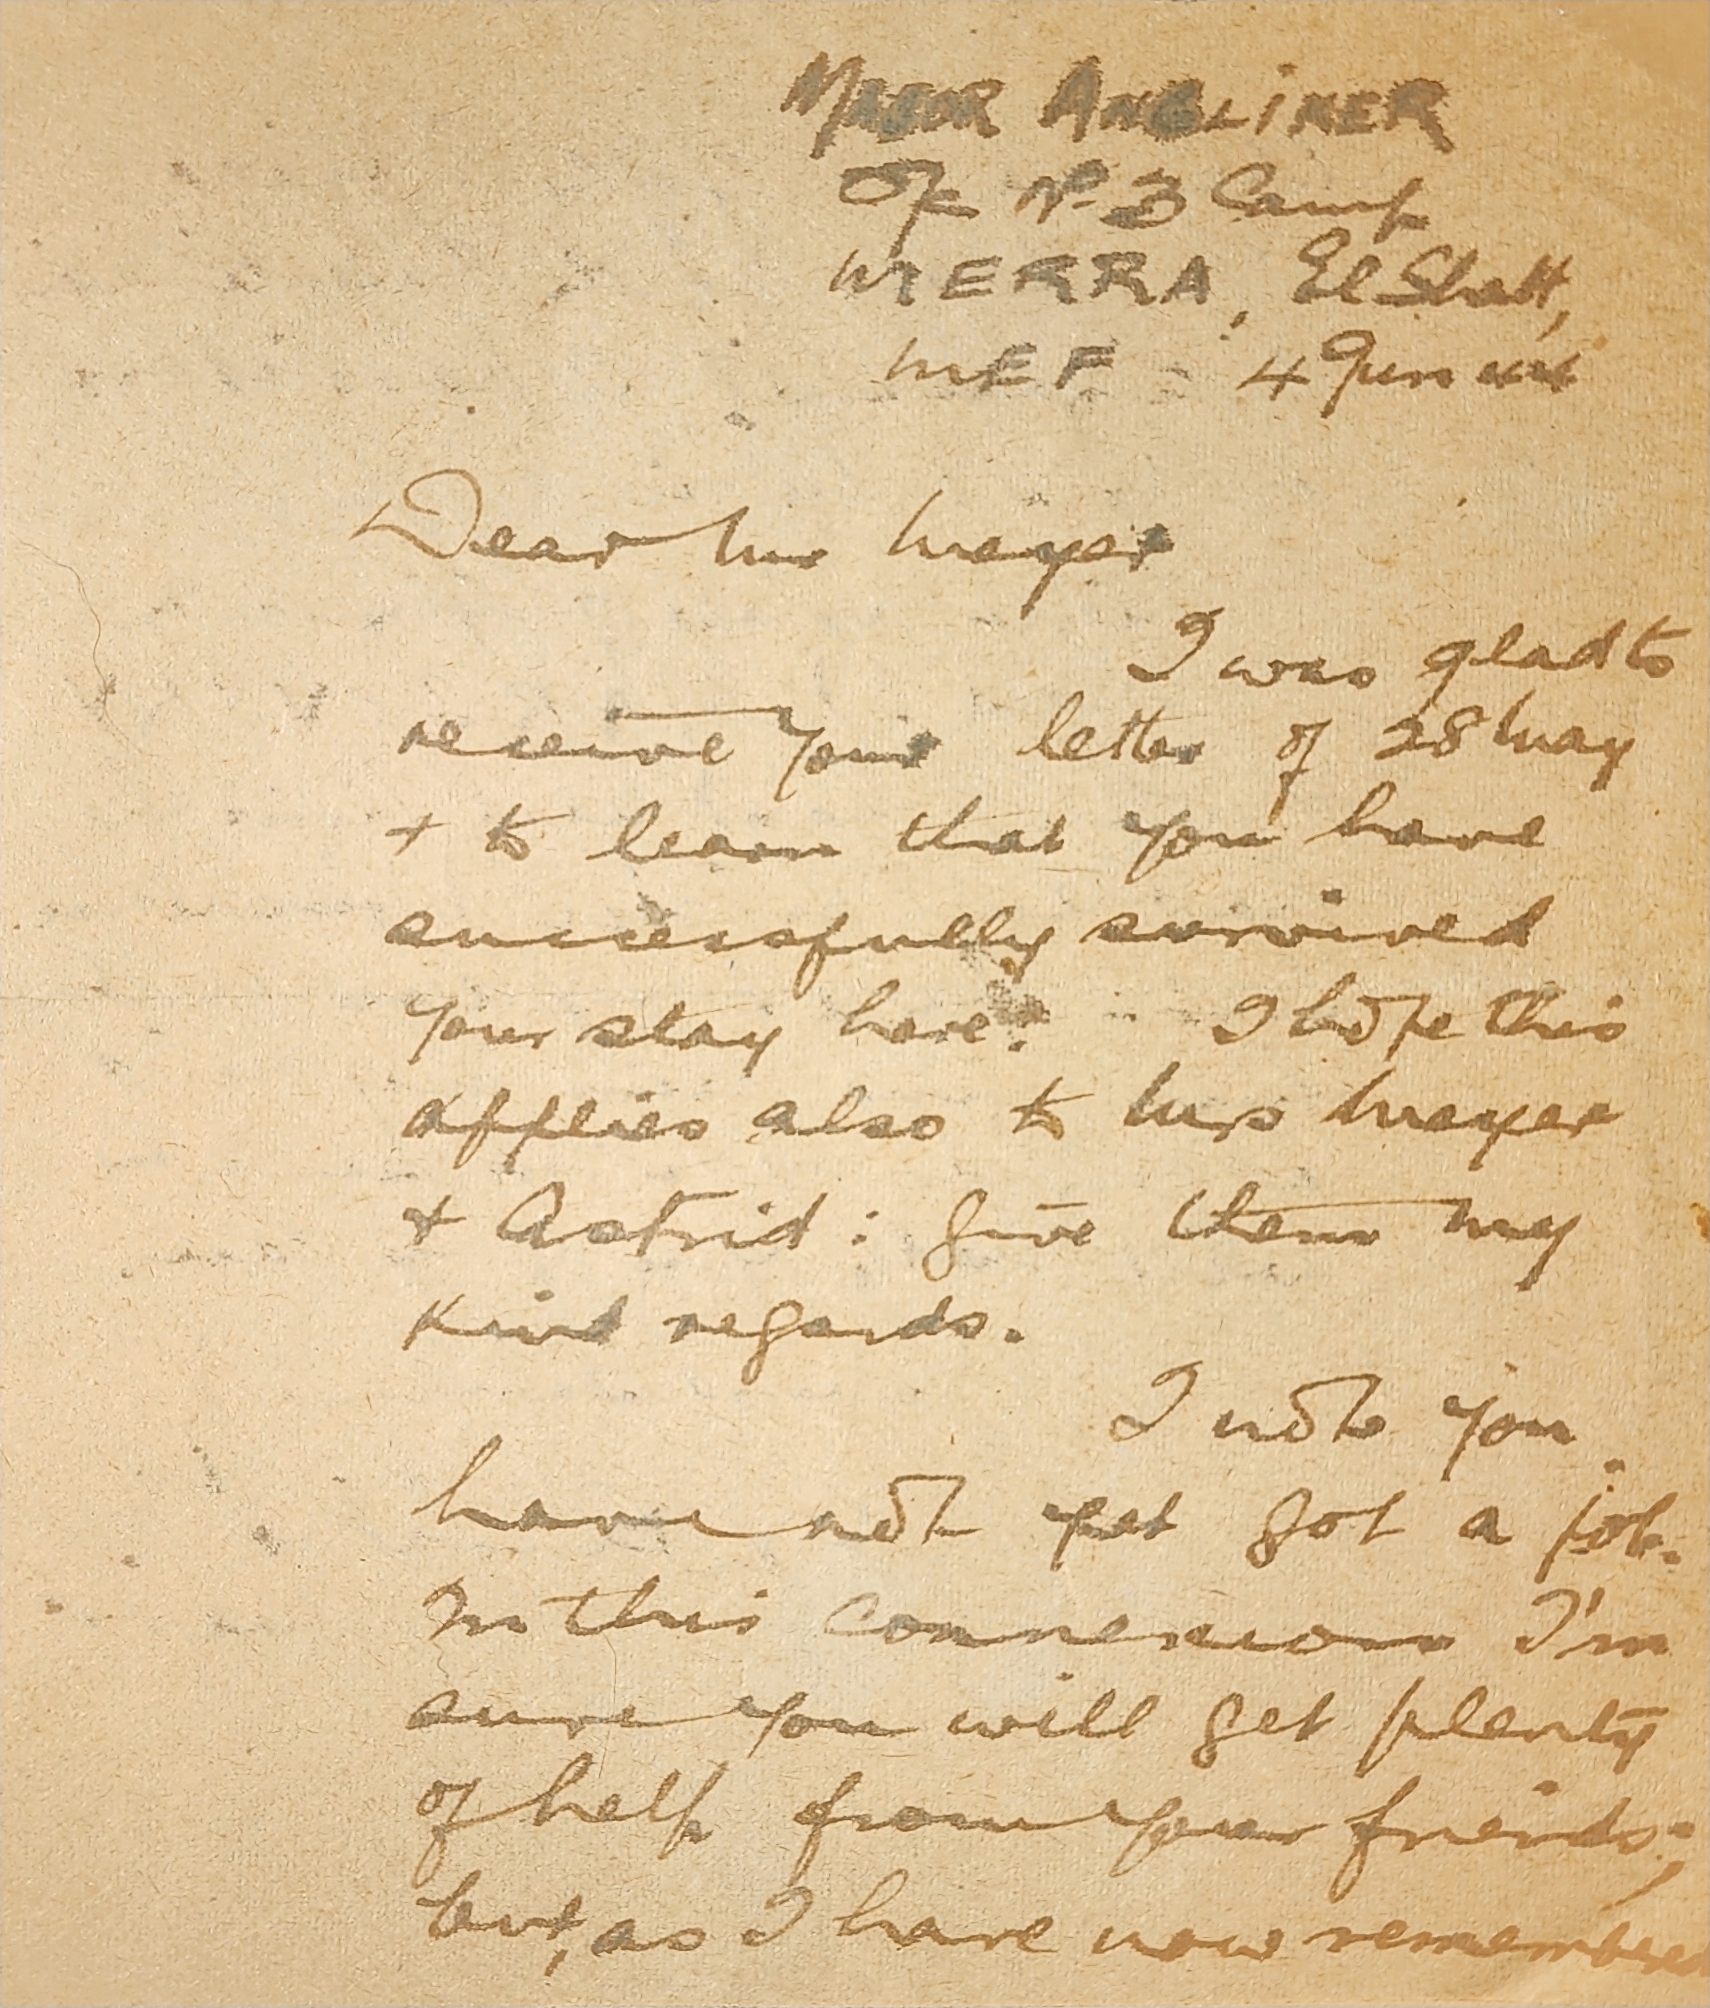 MAJOR
Of No. 3 Camp
MERRA, El Shatt,
MEF 4 Jun 44
Dear Mr Meyer
I was glad to
receive your letter of 28 May
+ to learn that you have
successfully survived
your stay here! I hope this
applies also to Mrs Meyer
+ Astrid: give them my
kind regards.
I note you
have not yet got a job.
In this connexion I'm
sure you will get plenty
of help from your friends;
but, as I have now remembered